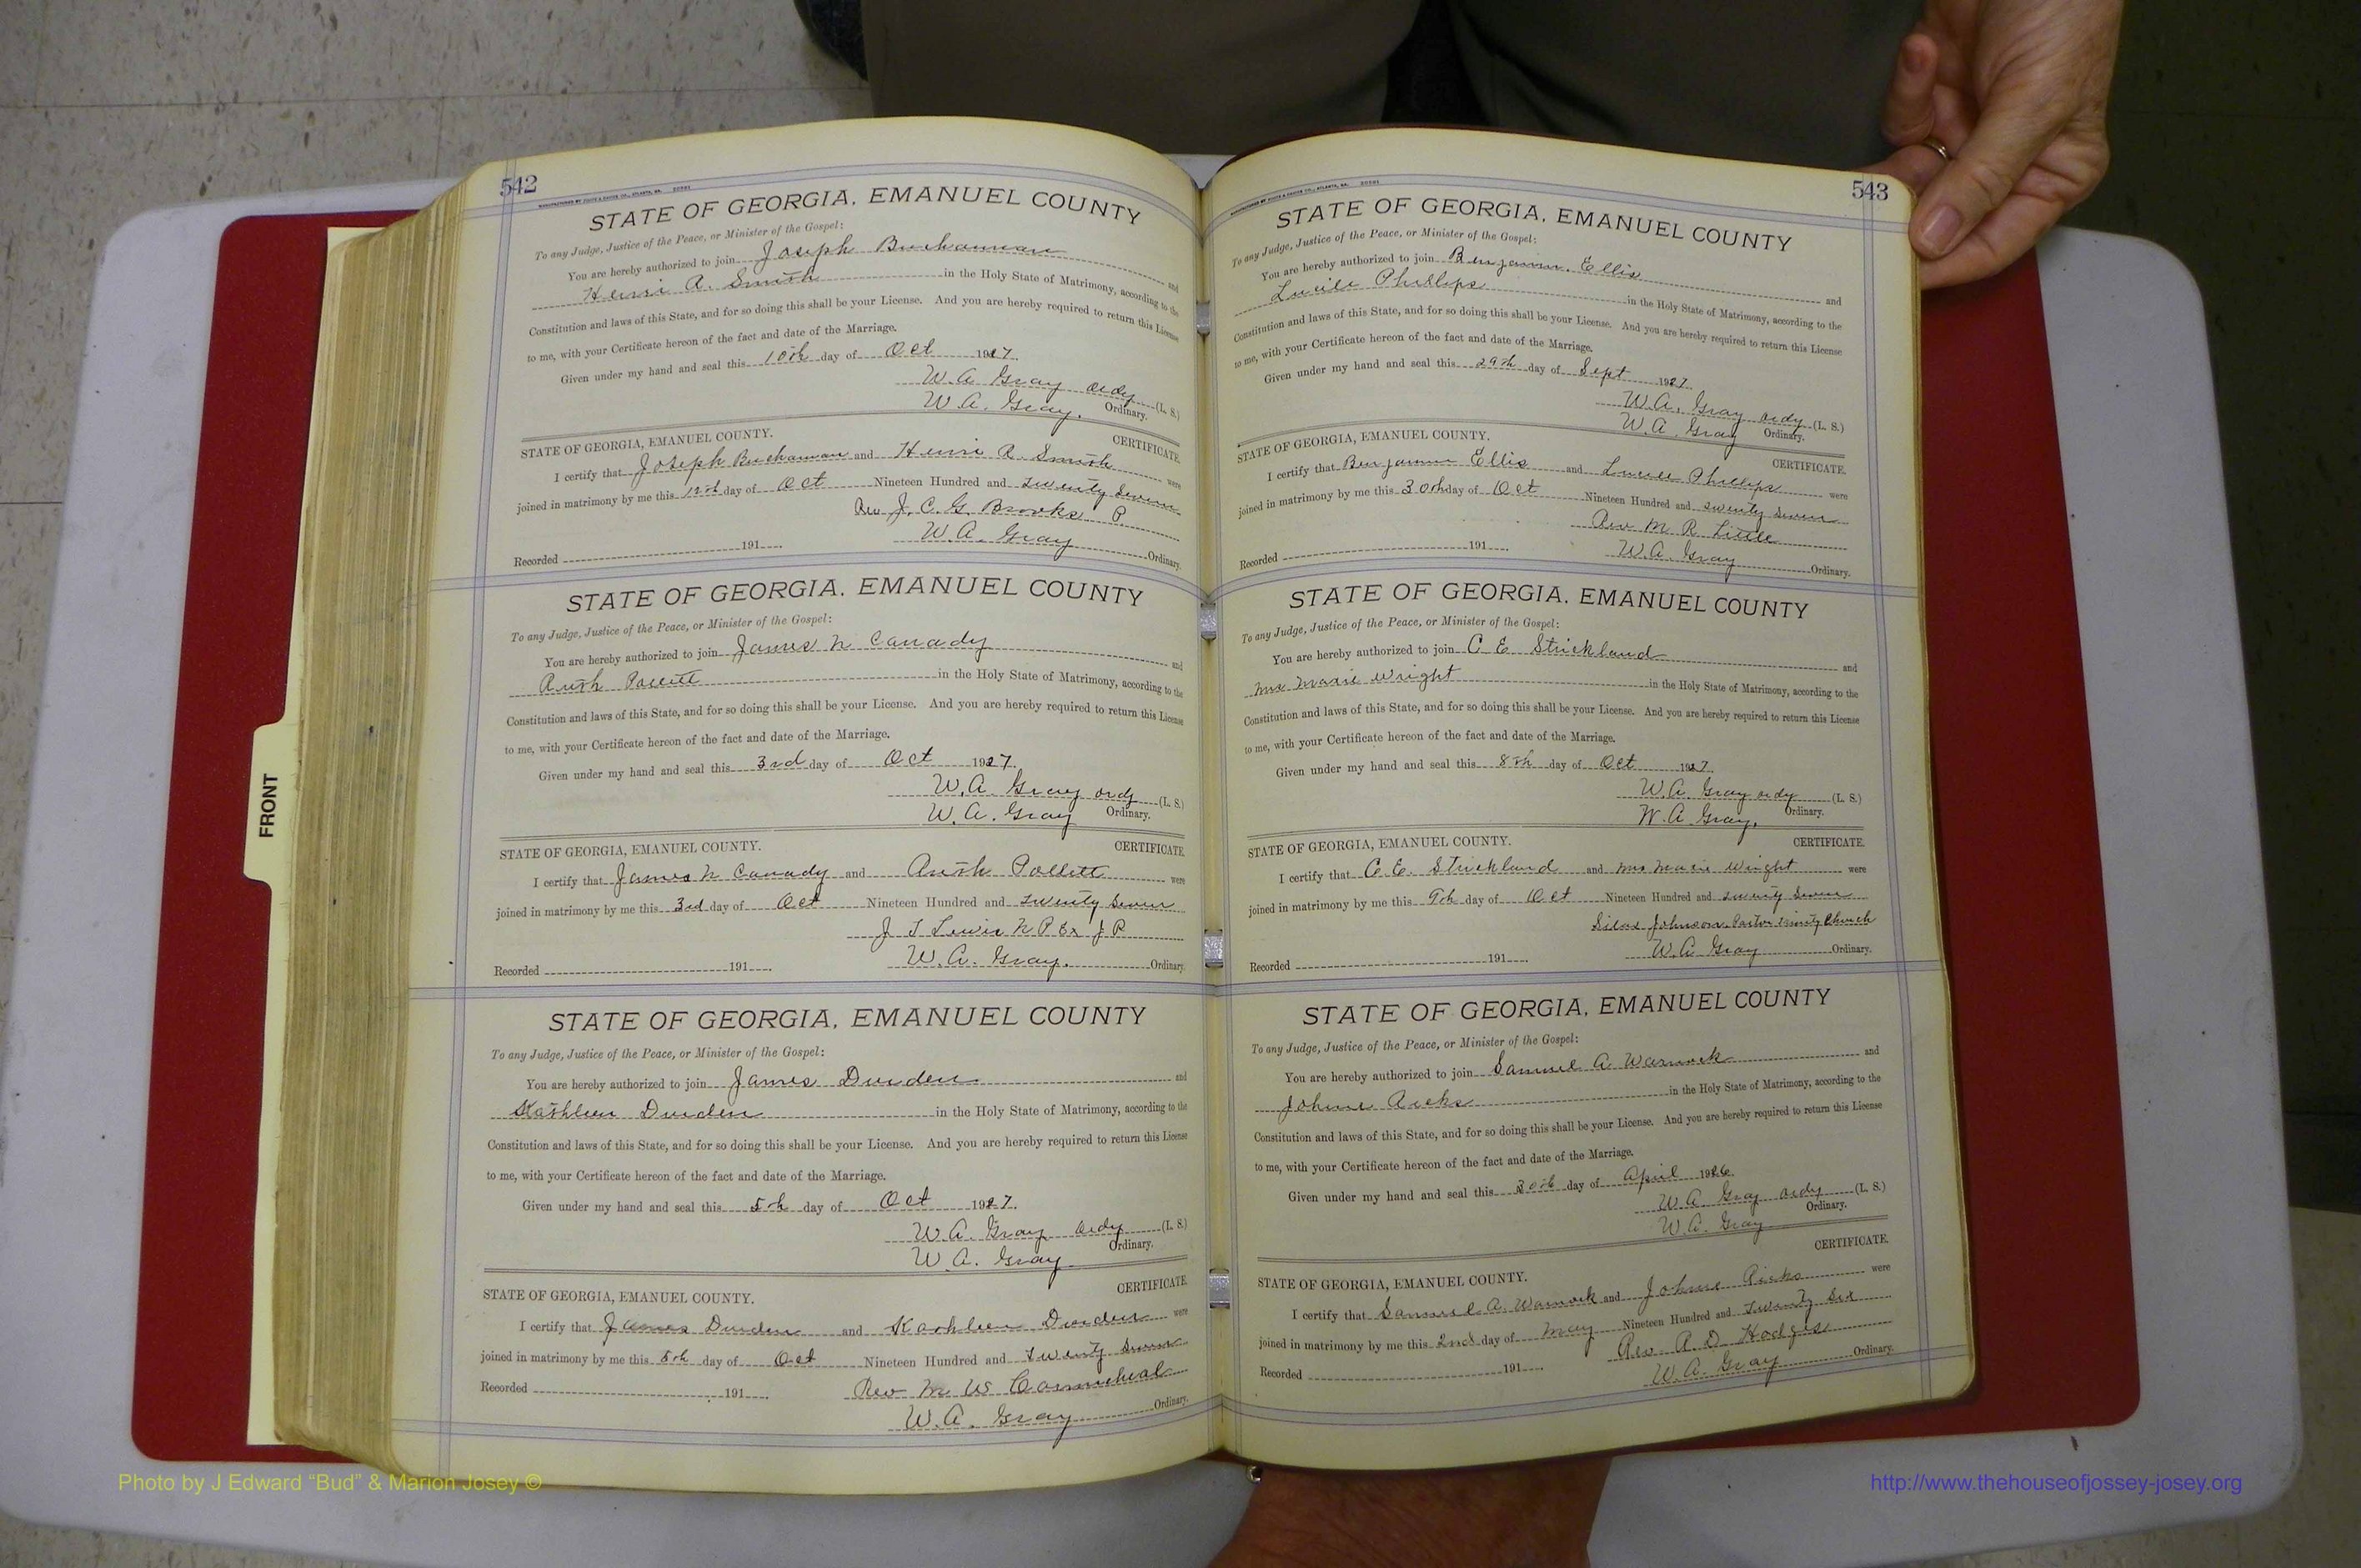 542
STATE OF GEORGIA, EMANUEL COUNTY
To any Judge, Justice of the Peace, or Minister of the Gospel:
You are hereby authorized to join Joseph Buchannan and
Henri A. Smith in the Holy State of Matrimony, according to the
Constitution and laws of this State, and for so doing this shall be your License. And you are hereby required to return this License
to me, with your Certificate hereon of the fact and date of the Marriage.
Given under my hand and seal this 10th day of Oct 1927.
W. A Gray ordy (L. S.)
W. A. Gray. Ordinary.
STATE OF GEORGIA, EMANUEL COUNTY. CERTIFICATE.
I certify that Joseph Buchannan and Henri A. Smith were
joined in matrimony by me this day of Oct Nineteen Hundred and twenty Seven
Rev J. C. G. Brooks P
Recorded 191 W. A. Gray Ordinary.
STATE OF GEORGIA, EMANUEL COUNTY
To any Judge, Justice of the Peace, or Minister of the Gospel:
You are hereby authorized to join James N Canady and
Ruth Pollett in the Holy State of Matrimony, according to the
Constitution and laws of this State, and for so doing this shall be your License. And you are hereby required to return this License
to me, with your Certificate hereon of the fact and date of the Marriage.
Given under my hand and seal this 3rd day of Oct 1927.
W. A. Gray ordy (L. S.)
W. A. Gray Ordinary.
STATE OF GEORGIA, EMANUEL COUNTY. CERTIFICATE.
I certify that James N Canady and Ruth Pollett were
joined in matrimony by me this 3rd day of Oct Nineteen Hundred and twenty Seven
J T Lewis N P Ex J P
Recorded 191 W. A. Gray. Ordinary.
STATE OF GEORGIA, EMANUEL COUNTY
To any Judge, Justice of the Peace, or Minister of the Gospel:
You are hereby authorized to join James Durden and
Kathleen Durden in the Holy State of Matrimony, according to the
Constitution and laws of this State, and for so doing this shall be your License. And you are hereby required to return this License
to me, with your Certificate hereon of the fact and date of the Marriage.
Given under my hand and seal this 5th day of Oct 1927.
W. A. Gray ordy (L. S.)
W. A. Gray Ordinary.
STATE OF GEORGIA, EMANUEL COUNTY. CERTIFICATE
I certify that James Durden and Kathleen Durden were
joined in matrimony by me this day of Oct Nineteen Hundred and Twenty Seven
Recorded 191 Rev M W Carmicheal
W. A. Gray Ordinary.
543
STATE OF GEORGIA, EMANUEL COUNTY
To any Judge, Justice of the Peace, or Minister of the Gospel:
You are hereby authorized to join Benjamin Ellis and
Lucile Phillips in the Holy State of Matrimony, according to the
Constitution and laws of this State, and for so doing this shall be your License. And you are hereby required to return this License
to me, with your Certificate hereon of the fact and date of the Marriage.
Given under my hand and seal this 29th day of Sept 1927.
W. A. Gray ordy (L. S.)
W. A. Gray Ordinary.
STATE OF GEORGIA, EMANUEL COUNTY. CERTIFICATE.
I certify that Benjamin Ellis and Lucile Phillips were
joined in matrimony by me this 30th day of Oct Nineteen Hundred and twenty Seven
Rev M R Little
Recorded 191 W. A. Gray Ordinary.
STATE OF GEORGIA, EMANUEL COUNTY
To any Judge, Justice of the Peace, or Minister of the Gospel:
You are hereby authorized to join C E Strickland and
Mrs Marie Wright in the Holy State of Matrimony, according to the
Constitution and laws of this State, and for so doing this shall be your License. And you are hereby required to return this License
to me, with your Certificate hereon of the fact and date of the Marriage.
Given under my hand and seal this 8th day of Oct 1927.
W. A. Gray ordy (L. S.)
W. A Gray, Ordinary.
STATE OF GEORGIA, EMANUEL COUNTY. CERTIFICATE.
I certify that C. E. Strickland and Mrs Marie Wright were
joined in matrimony by me this 9th day of Oct Nineteen Hundred and twenty Seven
Silas Johnson. Pastor Trinity Church
Recorded 191 W. A Gray Ordinary.
STATE OF GEORGIA, EMANUEL COUNTY
To any Judge, Justice of the Peace, or Minister of the Gospel:
You are hereby authorized to join Samuel A Warnock and
Johnie Ricks in the Holy State of Matrimony, according to the
Constitution and laws of this State, and for so doing this shall be your License. And you are hereby required to return this License
to me, with your Certificate hereon of the fact and date of the Marriage.
Given under my hand and seal this 30th day of April 1926.
W A Gray ordy (L. S.)
W A. Gray Ordinary.
STATE OF GEORGIA, EMANUEL COUNTY. CERTIFICATE.
I certify that Samuel A. Warnock and Johnie Ricks were
joined in matrimony by me this 2nd day of May Nineteen Hundred and Twenty Six
Recorded 191 Rev. R. D. Hodges
W. A. Gray Ordinary.
FRONT
Photo by J Edward “Bud” & Marion Josey ©
http://www.thehouseofjossey-josey.org